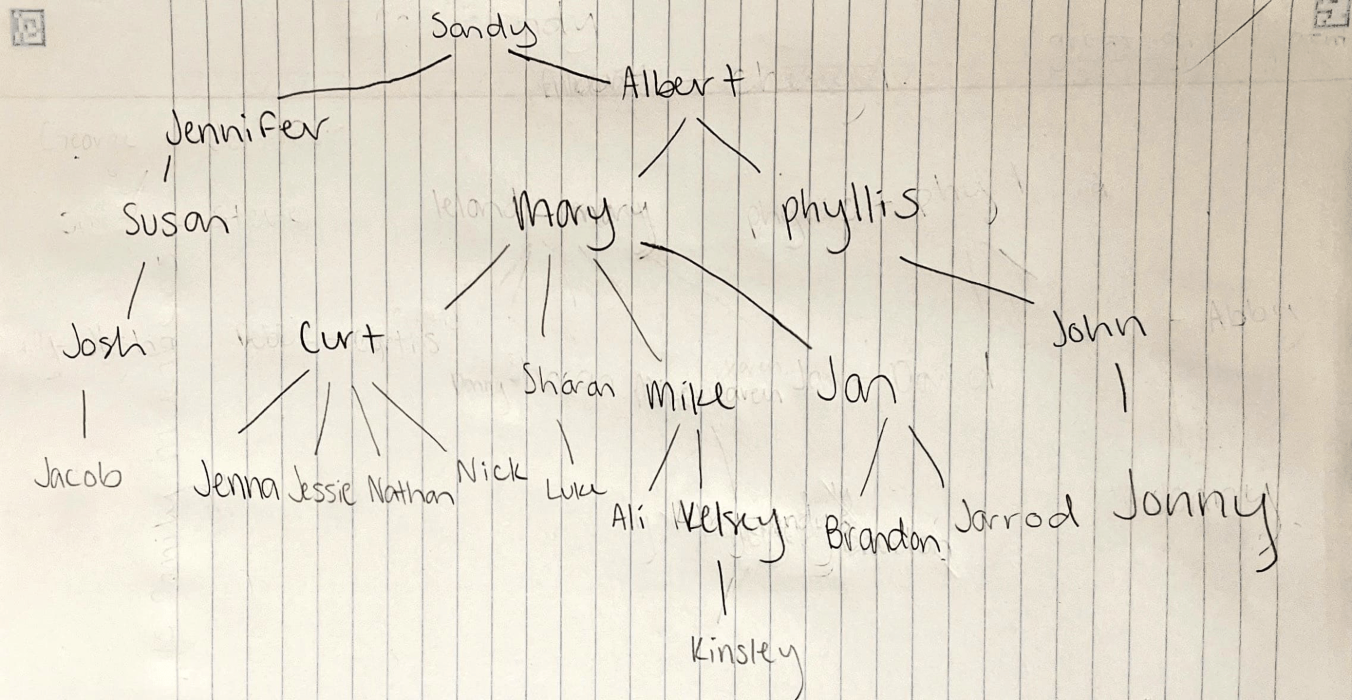 Sandy
Albert
Jennifer
Susan Mary phyllis
Josh Curt John
Sharon Mike Jan
Jacob Jenna Jessie Nathan Nick Luke
Ali Kelsey Brandon Jarrod Jonny
Kinsley